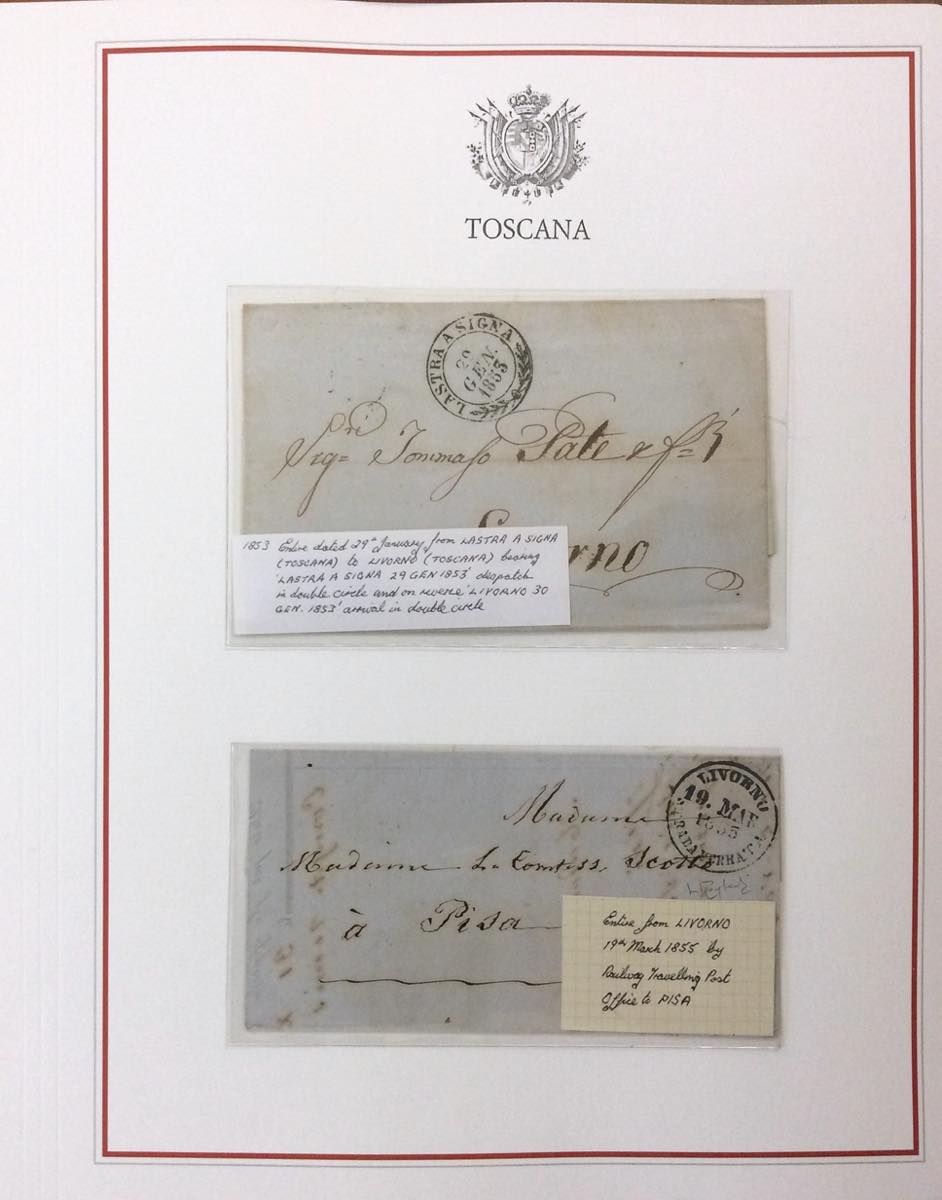 TOSCANA
LASTRA A SIGNA
29
GEN.
1853
Tommaso Pate e
1853 Entire dated 29th January from LASTRA A SIGNA
(TOSCANA) to LIVORNO (TOSCANA) bearing
'LASTRA A SIGNA 29 GEN 1853' despatch
in double circle and on reverse 'LIVORNO 30
GEN. 1853' arrival in double circle
LIVORNO
19. MAR
1855
Madame
Madame La Comtess. Scotto
à Pisa
Entire from LIVORNO
19th March 1855 by
Railway Travelling Post
Office to PISA